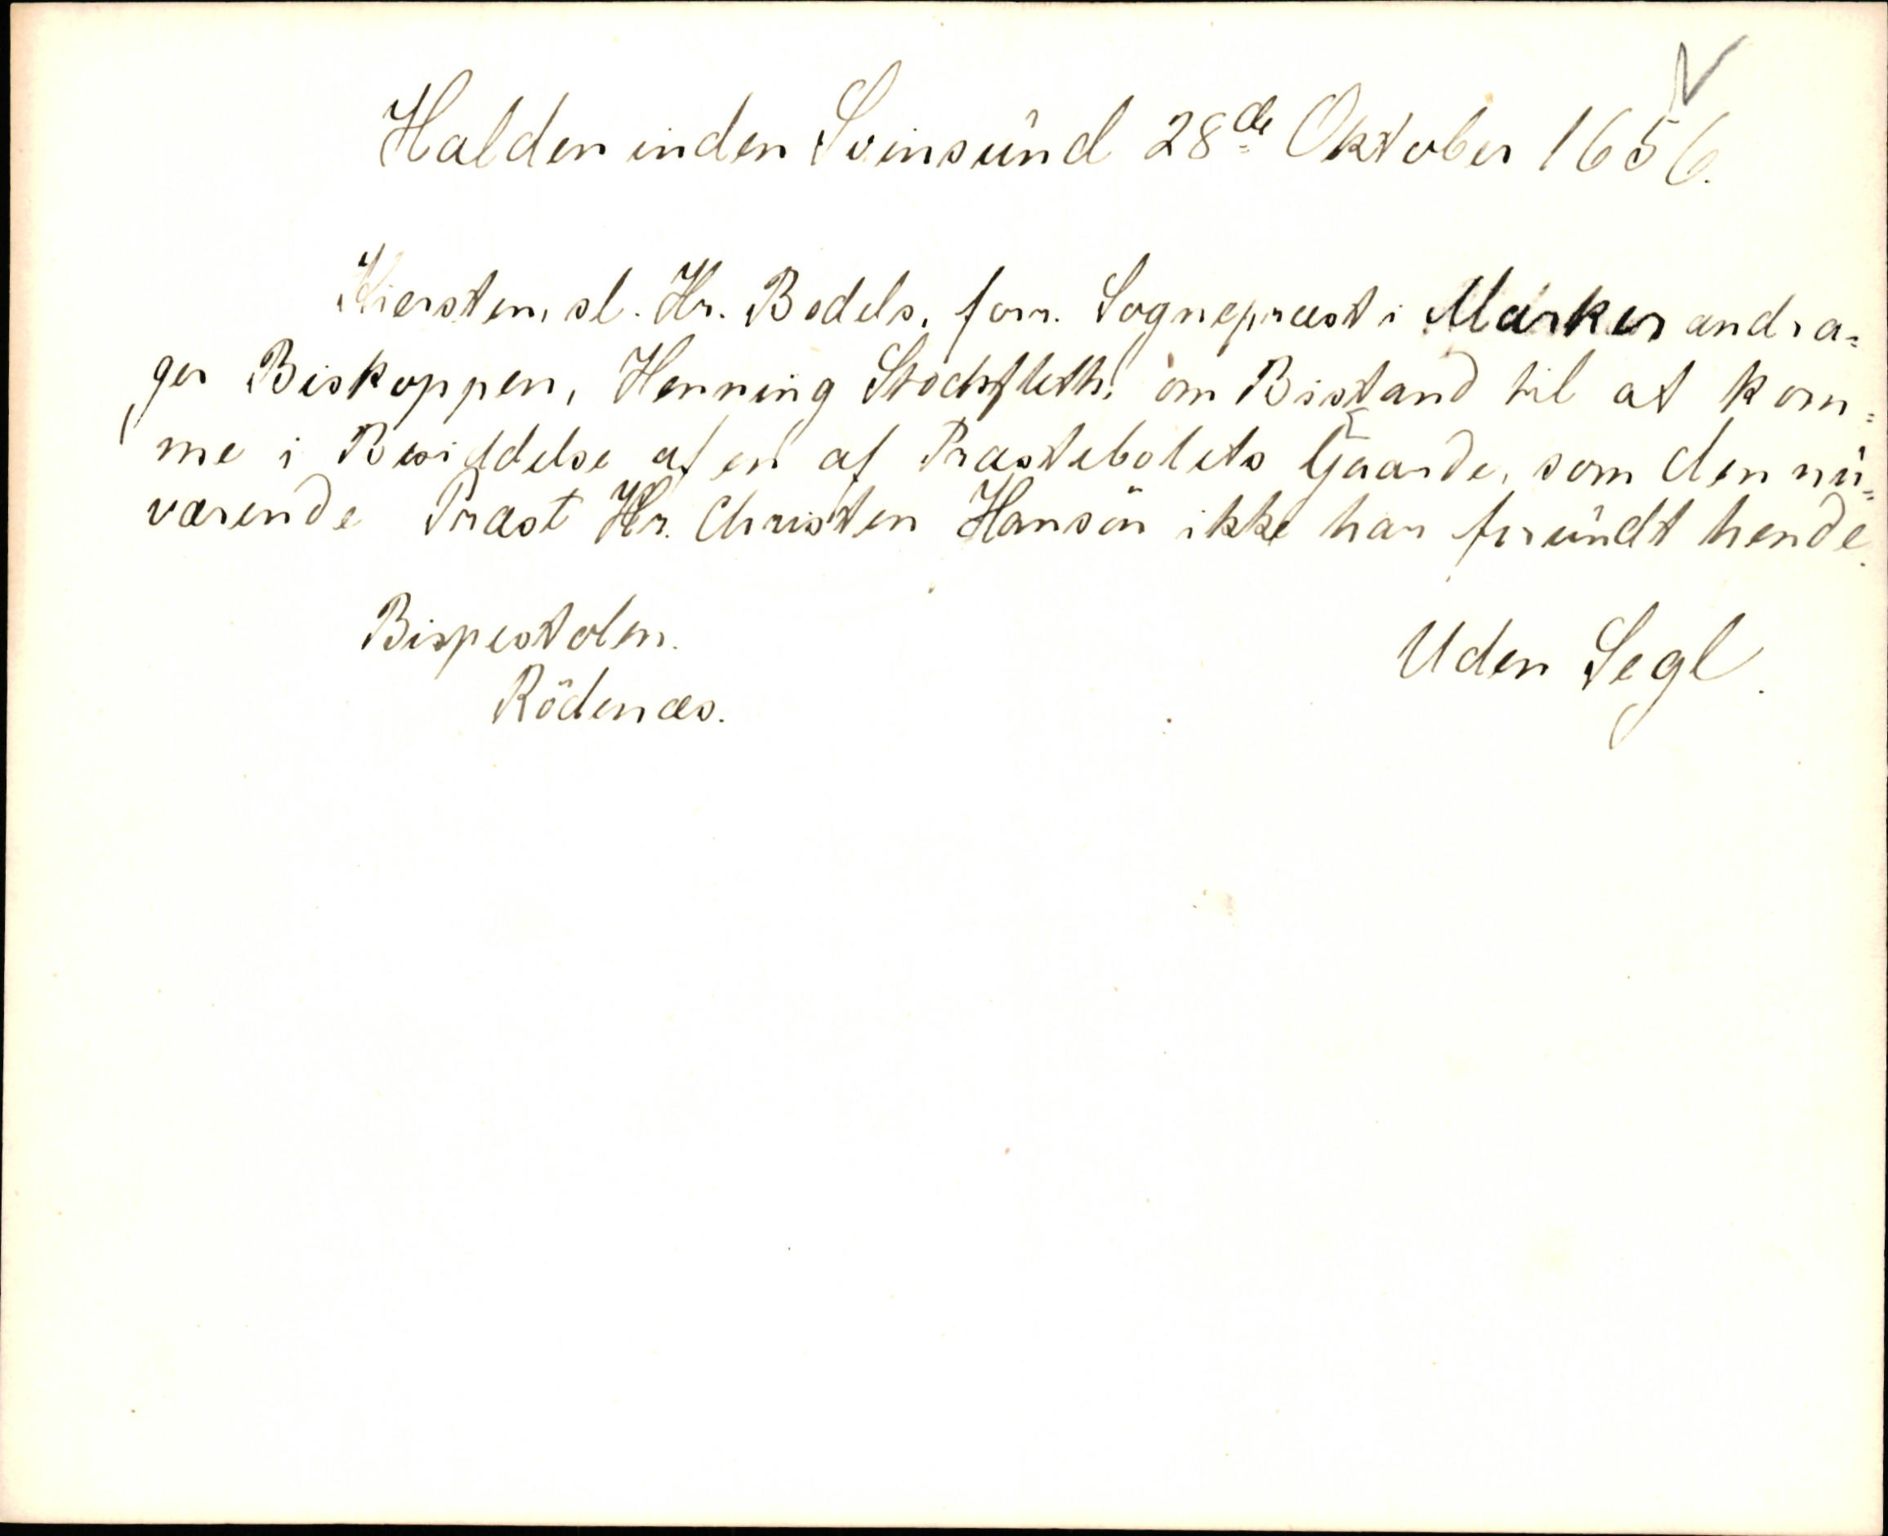 Halden inden Svinsund 28de Oktober 1656.
Kiersten, sl. Hr. Bodels, forr. Sognepræst i Marker andra=
ger Biskoppen, Henning Stockfleth, om Bistand til at kom=
me i Besiddelse af en af Præstebolets Gaarde, som den nu=
værende Præst Hr. Christen Hansön ikke har frundt hende.
Bispestolen.
Uden Segl.
Rödenæs.